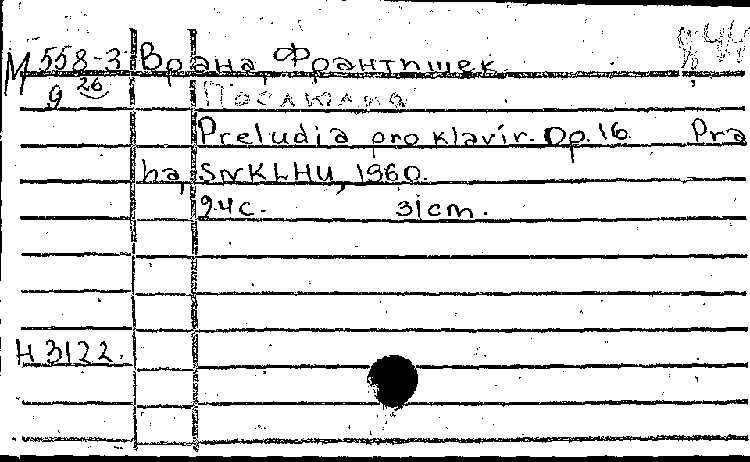 М 558-3 Врана, Франтишек
9 26
Preludia pro klavír. Op. 16 Pra
ha, SNKLHU, 1960.
24 с. 31 cm.
Н 3122.